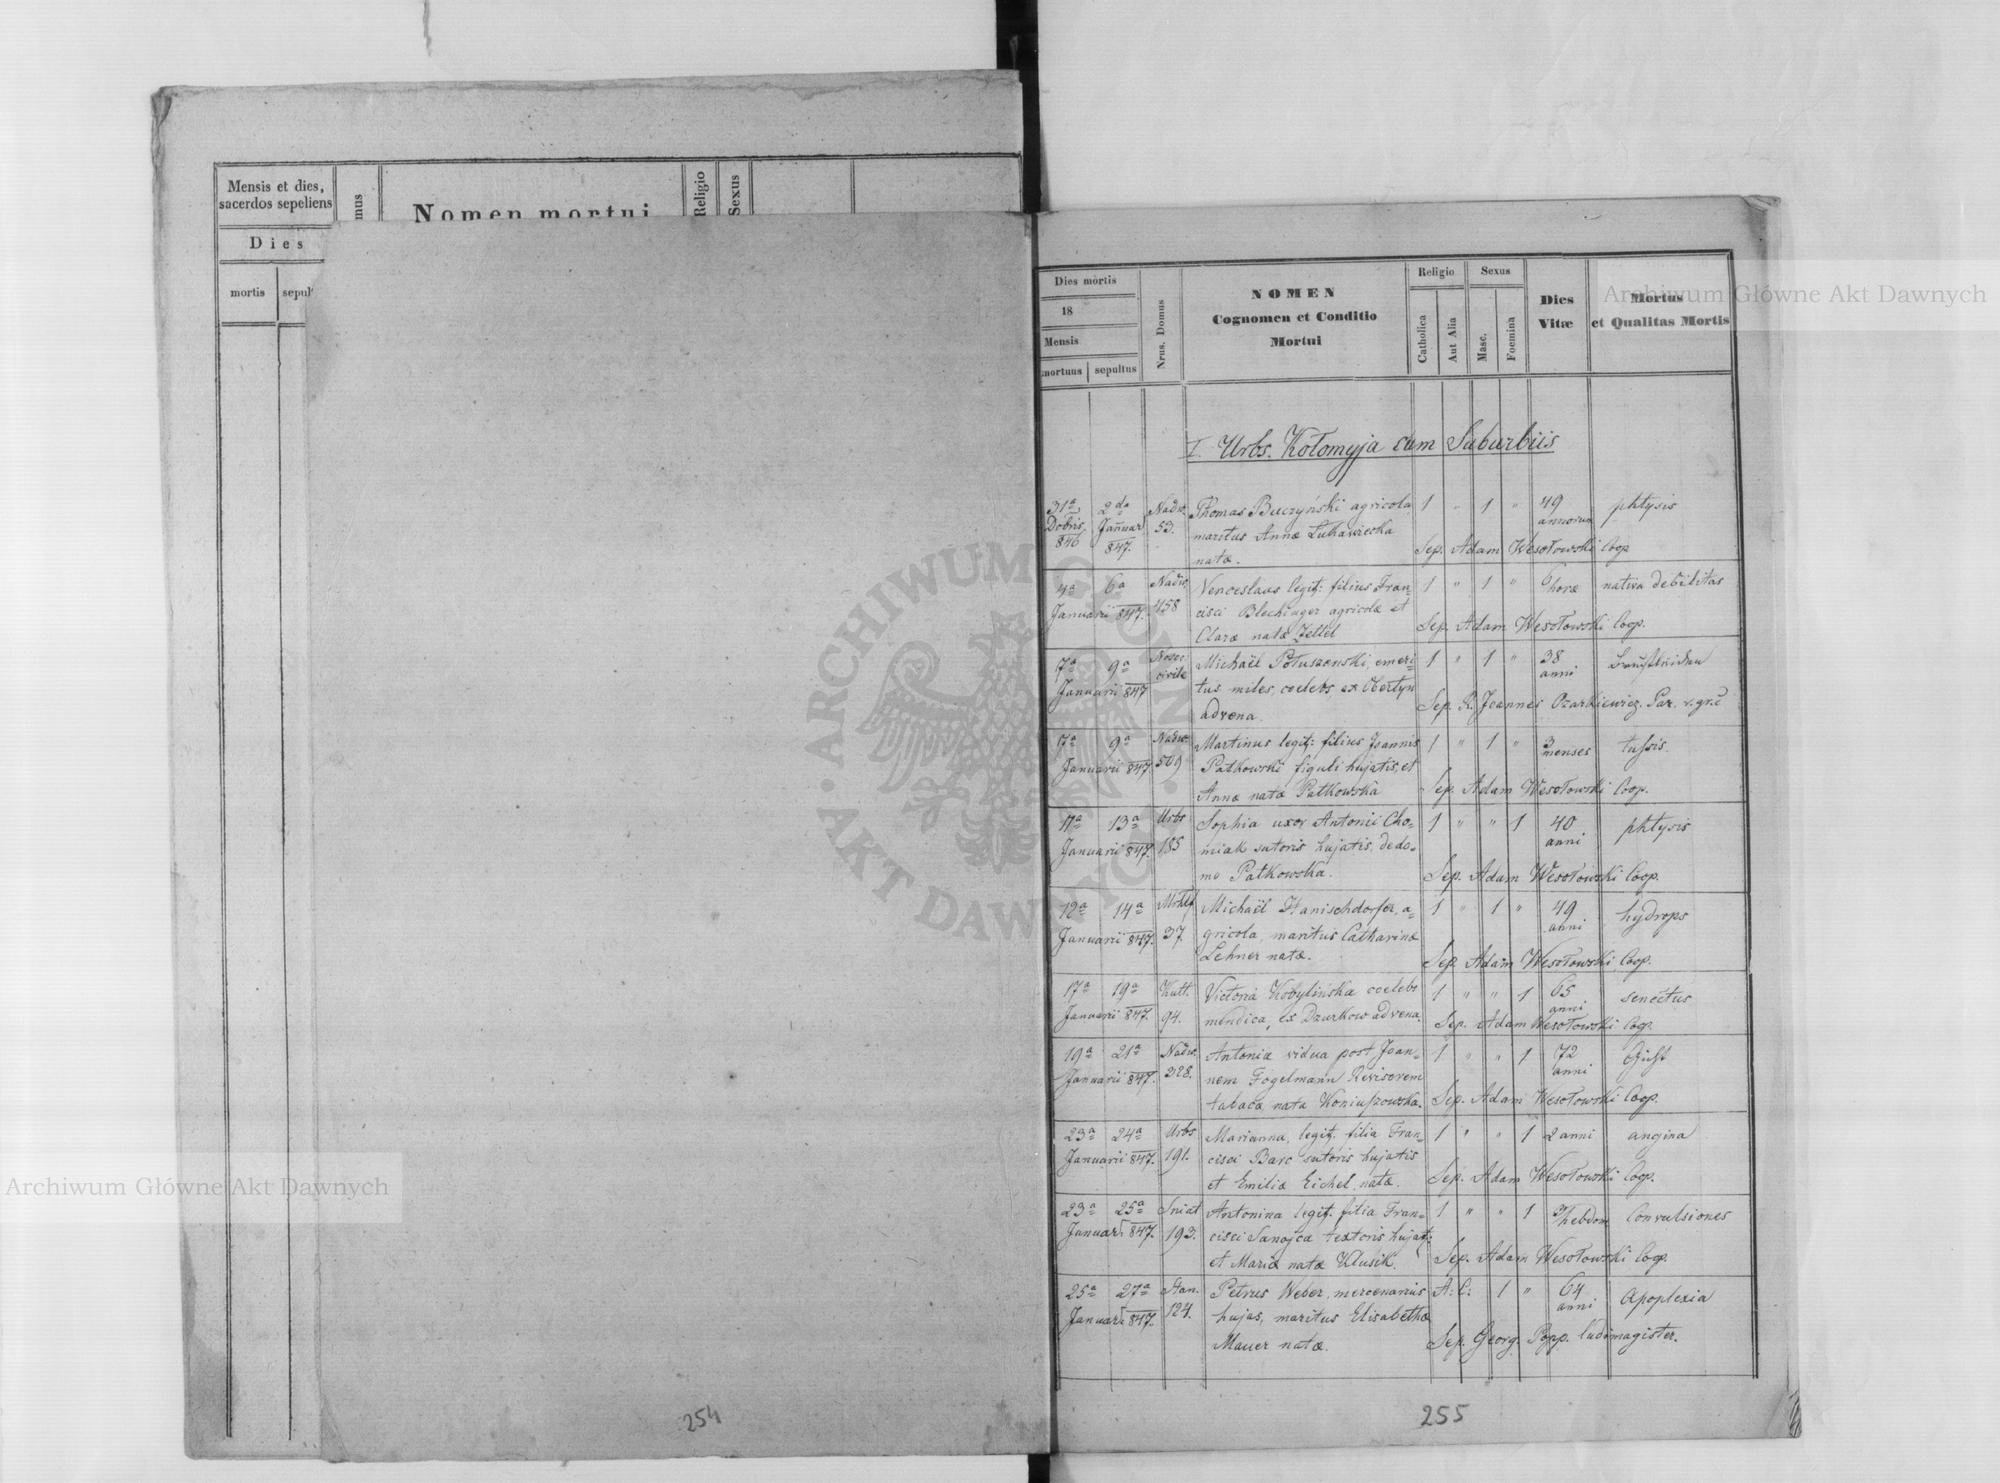 Mensis et dies,
sacerdos sepeliens
Dies
mortis
sepul
mus
Nomen mortui
Religio
Sexus
254
Dies mortis
18
Mensis
mortuus sepultus
Nrus. Domus
NOMEN
Cognomen et Conditio
Mortui
Religio
Catholica
Aut Alia
Sexus
Masc.
Foemina
Dies
Vitæ
Mortus
et Qualitas Mortis
I. Urbs. Kołomyja cum Suburbiis
31ª 2da Nadw. Thomas Buczyński agricola 1 " 1 " 49 phtysis
Xbris Januar 53. maritus Annæ Łukawiecka annorum
846 847. natæ. Sep. Adam Wesołowski Coop
4ª 6ª Nadw. Venceslaus legit: filius Fran= 1 " 1 " 6 horæ nativa debilitas
Januarii 847. 458 cisci Blechinger agricolæ et
Claræ natæ Zettel Sep. Adam Wesołowski Coop.
7ª 9ª Nosoc: Michaël Potuszenski, emeri= 1 " 1 " 38
Januarii 847 civile tus miles, coelebs, ex Obertyn anni
advena. Sep. R. Joannes Ozarkiewicz. Par. r. gr. c
7ª 9ª Nadw. Martinus legit: filius Joannis 1 " 1 " 3 tussis.
Januarii 847. 509 Patkowski figuli hujatis, et menses
Annæ natæ Patkowska Sep. Adam Wesołowski Coop.
17ª 13ª Urbs Sophia uxor Antonii Cho= 1 " " 1 40 phtysis
Januarii 847. 185 miak sutoris hujatis, de do= anni
mo Patkowska. Sep. Adam Wesołowski Coop.
12ª 14ª Michaël Hanischdorfer, a= 1 " 1 " 49 hydrops
Januarii 847. 37. gricola, maritus Catharinæ anni
Lehner natæ. Sep. Adam Wesołowski, Coop.
17ª 19ª Kutt. Victoria Kobylińska coelebs 1 " " 1 65 senectus
Januarii 847. 94. mendica, ex Dzurkow advena. anni
Sep. Adam Wesołowski Coop.
19ª 21ª Nadw. Antonia vidua post Joan= 1 " " 1 72 Gicht
Januarii 847. 328. nem Fogelmann Revisorem anni
tabacæ, nata Koniuszowska. Sep. Adam Wesołowski Coop.
23ª 24ª Urbs Marianna, legit. filia Fran= 1 " " 1 2 anni angina
Januarii 847. 191. cisci Barc sutoris hujatis
et Emiliæ Eichel, natæ. Sep. Adam Wesołowski Coop.
23ª 25ª Sniat Antonina legit. filia Fran= 1 " " 1 3/hebdom Convulsiones
Januar 847. 193. cisci Sanojca textoris hujat:
et Mariæ natæ Klusik. Sep. Adam Wesołowski Coop.
25ª 27ª Stan. Petrus Weber, mercenarius A: C: 1 " 64 Apoplexia
Januar 847. 124. hujas, maritus Elisabethæ anni
Mauer natæ. Sep. Georg. Popp. ludimagister.
255
Archiwum Główne Akt Dawnych
Archiwum Główne Akt Dawnych
ARCHIWUM GŁÓWNE · AKT DAWNYCH ·